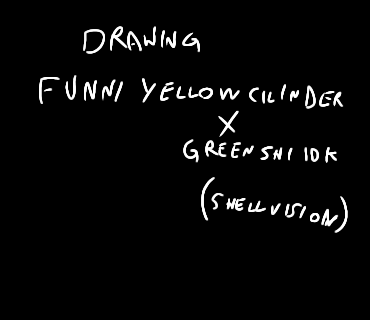 DRAWING
FUNNI YELLOW CILINDER
X
GREEN SHI IDK
(SHELLVISION)